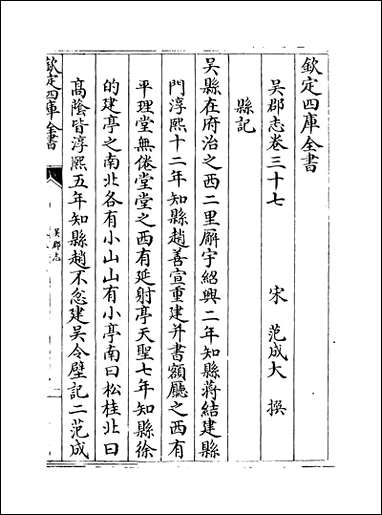 欽定四庫全書
吳郡志卷三十七
宋 范成大 撰
縣記
吳縣在府治之西二里廨宇紹興二年知縣蔣結建縣
門淳熙十二年知縣趙善宣重建并書額廳之西有
平理堂無倦堂堂之西有延射亭天聖七年知縣徐
的建亭之南北各有小山山有小亭南曰松桂北曰
高蔭皆淳熙五年知縣趙不忽建吳令壁記二范成
欽定四庫全書
吳郡志